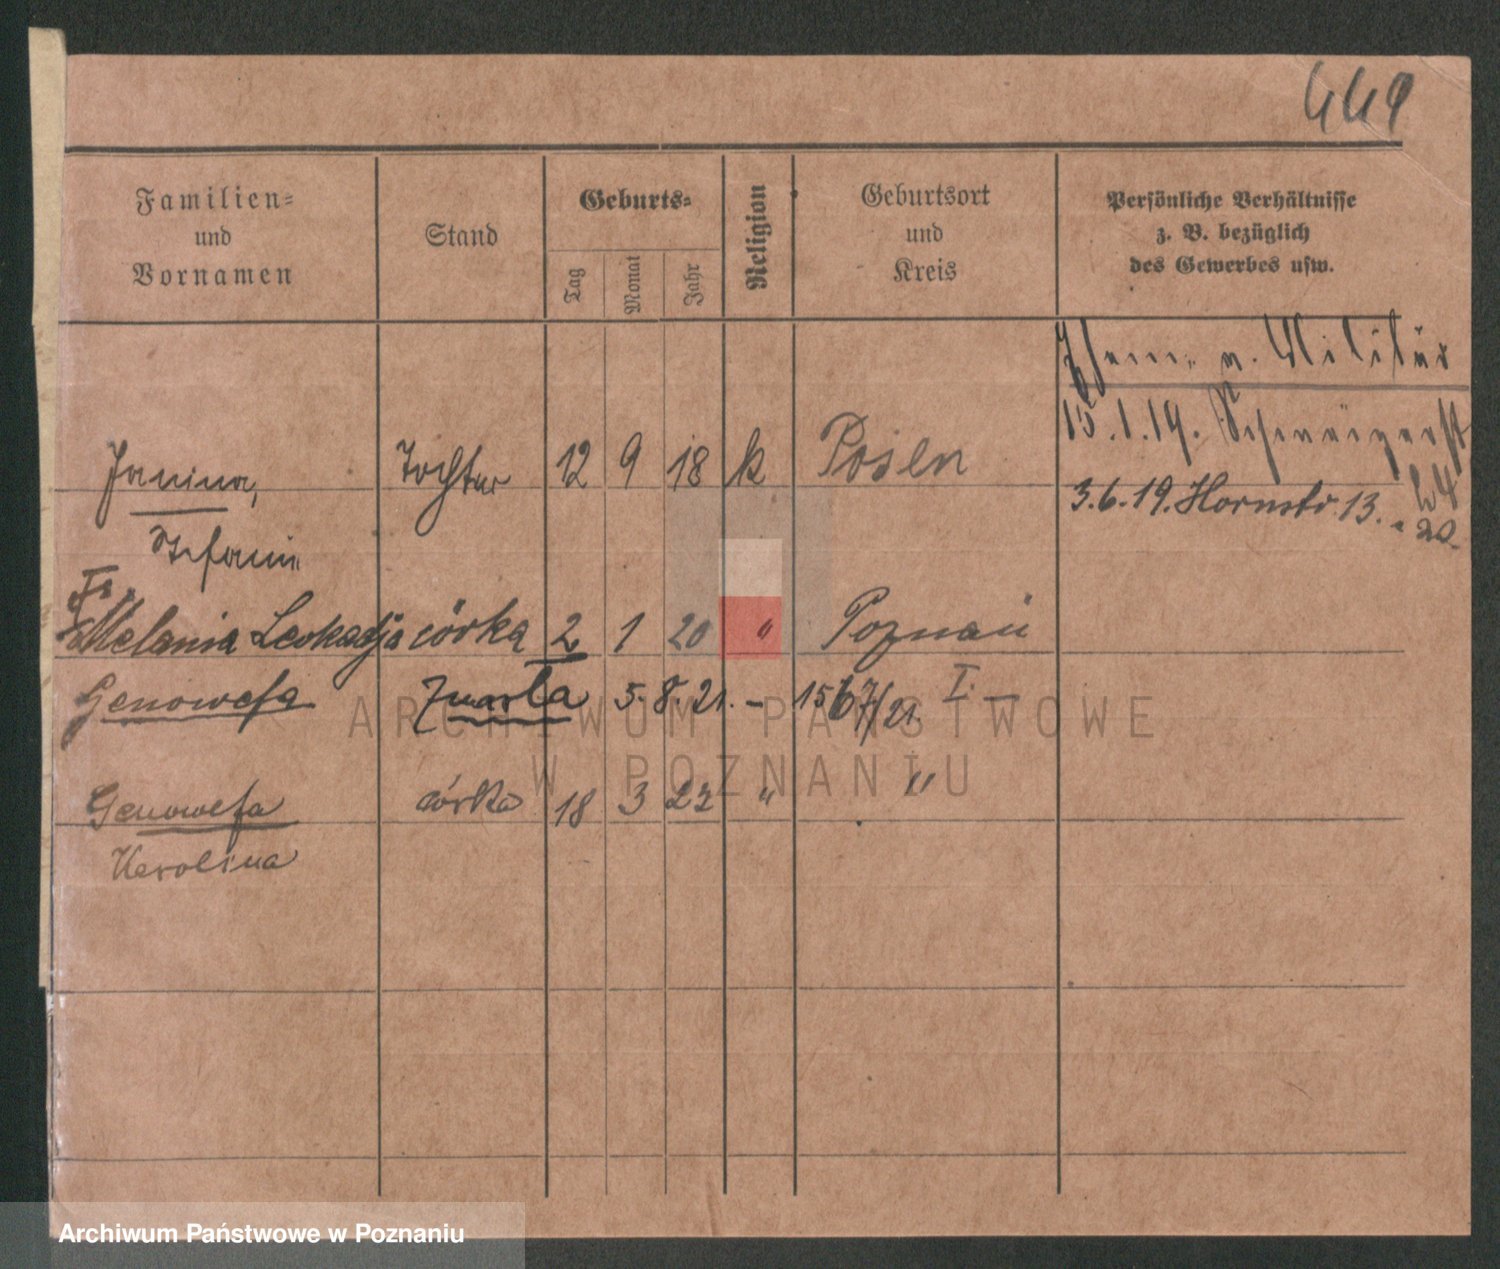 449
Familien=
und
Vornamen
Stand
Geburts=
Tag
Monat
Jahr
Religion
Geburtsort
und
Kreis
Persönliche Verhältnisse
z. B. bezüglich
des Gewerbes usw.
Ehem. v. Militär
15.1.19.
Janina, Tochter 12 9 18 k Posen
3.6.19. Hornstr. 13.
20.
Melania Leokadja córka 2 1 20 " Poznań
Genowefa zmarła 5.8.21. – 1567/21. I. –
Genowefa córka 18 3 22 " "
Karolina
ARCHIWUM PAŃSTWOWE
W POZNANIU
Archiwum Państwowe w Poznaniu